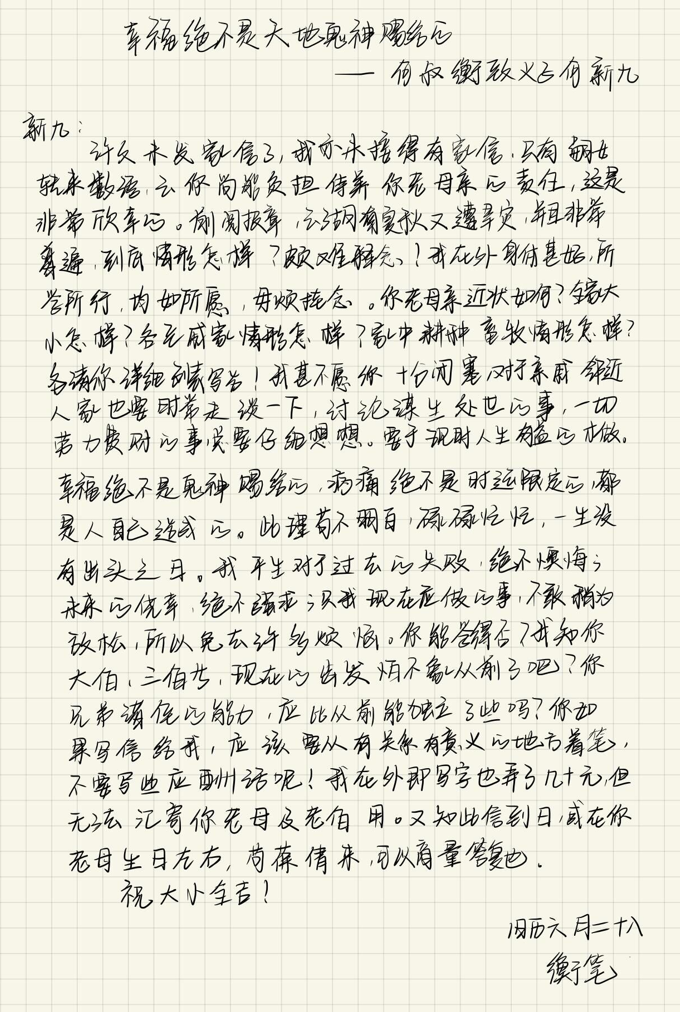 幸福绝不是天地鬼神赐给的
—— 何叔衡致义子何新九
新九：
许久未发家信了，我亦未接得有家信，只有翻女
转来数语，云你尚能负担侍养你老母亲的责任，这是
非常欣幸的。前阅报章，云湖南夏秋又遭旱灾，并且非常
普遍，到底情形怎样？颇难释念！我在外身体甚好，所
学所行，均如所愿，毋烦挂念。你老母亲近状如何？全家大
小怎样？各至戚家情形怎样？家中耕种畜牧情形怎样？
务请你详细列表写告！我甚不愿你十分闭塞，对于亲戚邻近
人家也要时常走谈一下，讨论谋生处世的事，一切
劳力费财的事总要仔细想想。要于现时人生有益的才做。
幸福绝不是鬼神赐给的，病痛绝不是时运限定的，都
是人自己造成的。此理苟不明白，碌碌忙忙，一生没
有出头之日。我平生对于过去的失败，绝不懊悔；
未来的侥幸，绝不强求；只我现在应做的事，不敢稍为
放松，所以免去许多烦恼。你能学得否？我知你
大伯，三伯等，现在的齿发怕不象从前了吧？你
兄弟谋住的能力，应比从前能独立了些吗？你如
果写信给我，应该要从有关系有意义的地方着笔，
不要写些应酬话呢！我在外即写字也弄了几十元，但
无法汇寄你老母及老伯用。又知此信到日，或在你
老母生日左右，苟葆倩来，可以商量答复也。
祝大小全吉！
旧历六月二十八
衡笔